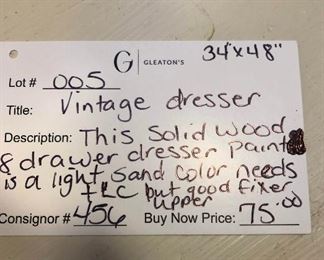 34"x48"
G | GLEATON'S
Lot # 005
Title: Vintage dresser
Description: This Solid Wood
8 drawer dresser paint
is a light sand color needs
TLC but good fixer
upper
Consignor # 456 Buy Now Price: 75.00